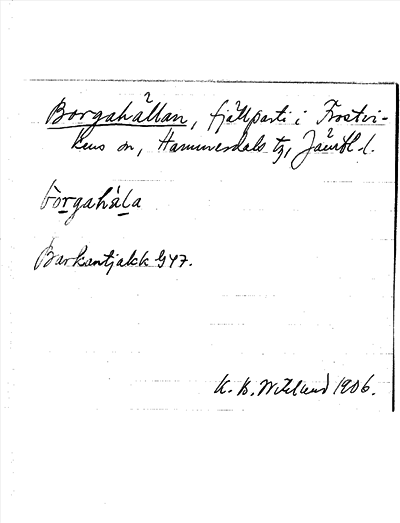 Borgahällan, fjällparti i Frostvi-
kens sn, Hammerdals tg, Jämtl. l.
bòrgahála
Barkantjakk G47.
K. B. Wiklund 1906.